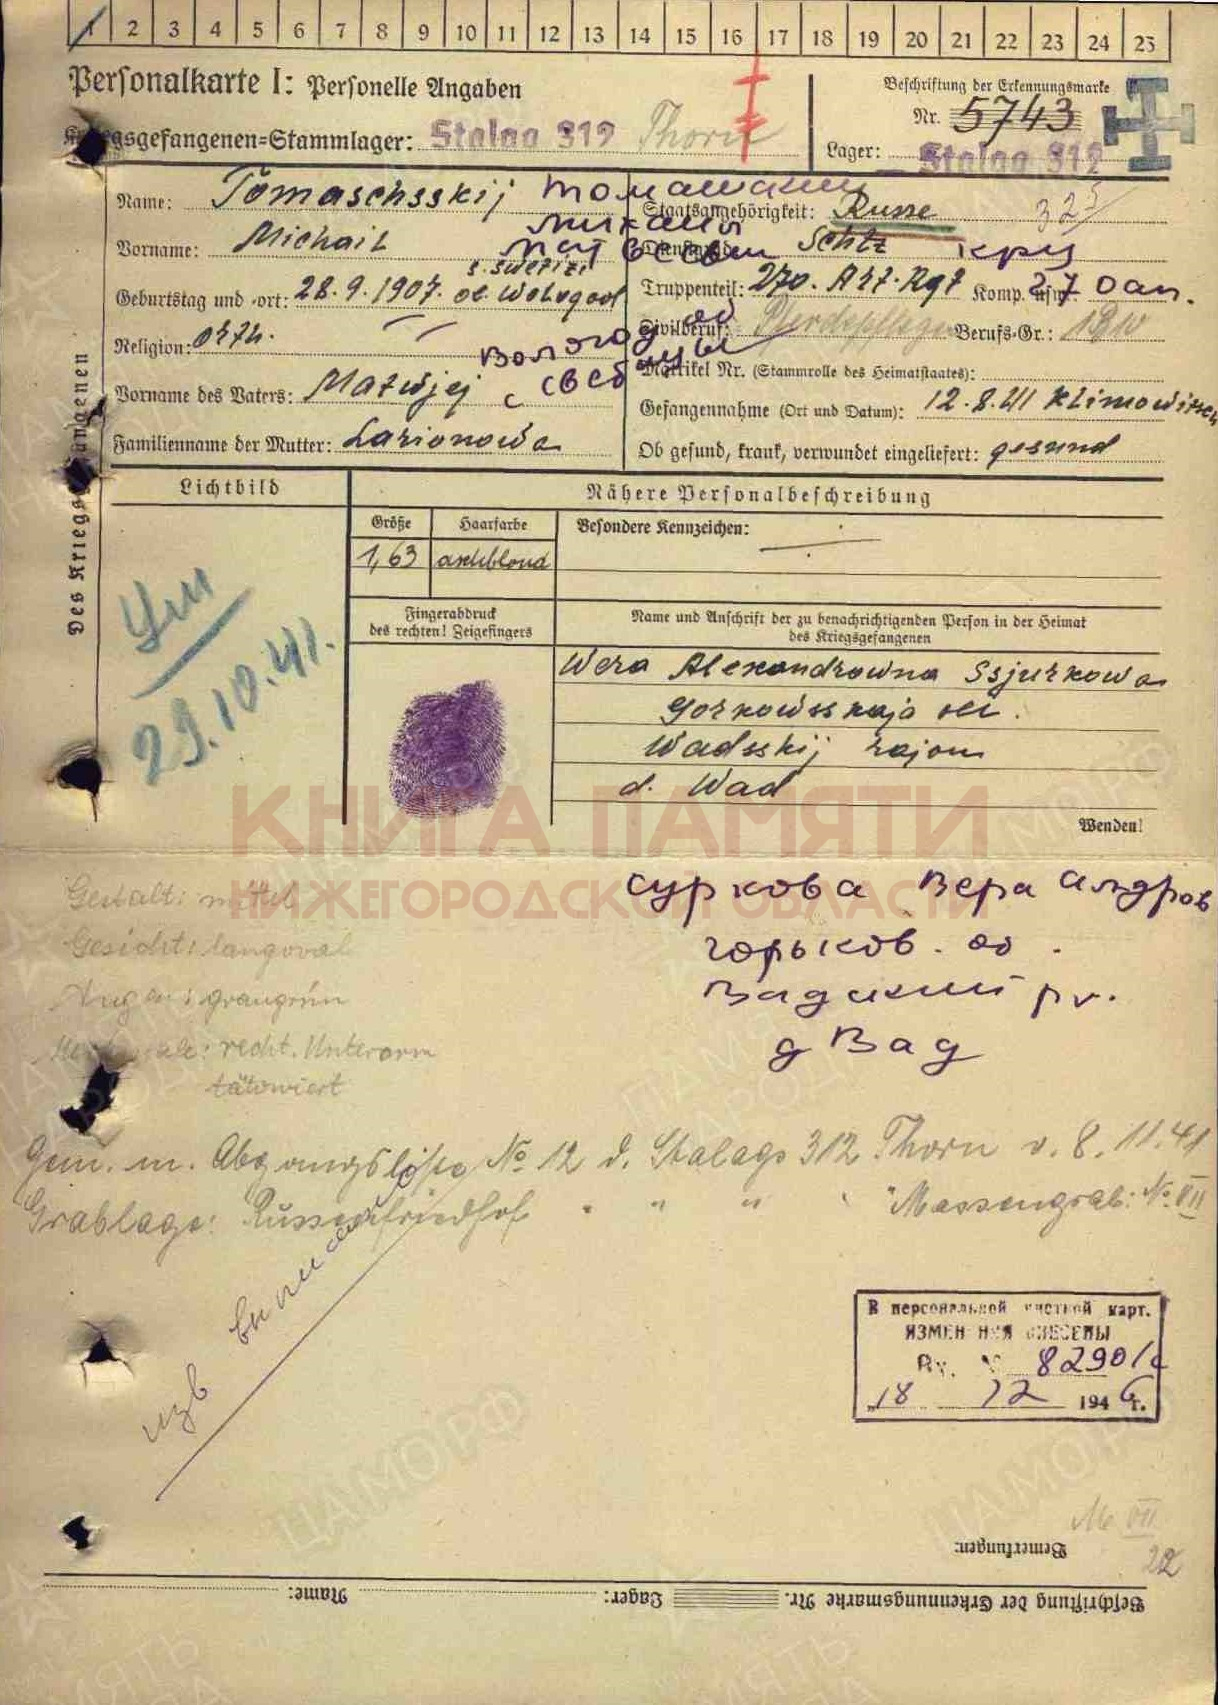 1 2 3 4 5 6 7 8 9 10 11 12 13 14 15 16 17 18 19 20 21 22 23 24 25
Personalkarte I: Personelle Angaben
Beschriftung der Erkennungsmarke
Nr. 5743
Kriegsgefangenen-Stammlager: Stalag 312 Thorn
Lager: Stalag 312
Name: Tomaschsskij Томашский
Staatsangehörigkeit: Russe
Vorname: Michail
Михаил
Матвеевич
Schtz
Geburtstag und -ort: 28.9.1907.
Truppenteil: 270. Art. Rgt Komp. usw.:
Zivilberuf: Pferdepfleger Berufs-Gr.:
Religion: orth.
Вологод об
Matrikel Nr. (Stammrolle des Heimatstaates):
Vorname des Vaters: Matwjej
с
Gefangennahme (Ort und Datum): 12.8.41 Klimowitschi
Familienname der Mutter: Larionowa
Ob gesund, krank, verwundet eingeliefert: gesund
Des Kriegsgefangenen
Lichtbild
Nähere Personalbeschreibung
Größe Haarfarbe Besondere Kennzeichen:
1,63 aschblond
Ум
29.10.41.
Fingerabdruck
des rechten! Zeigefingers
Name und Anschrift der zu benachrichtigenden Person in der Heimat
des Kriegsgefangenen
Wera Alexandrowna Ssjurkowa
Gorkowsskaja obl.
Wadsskij rajon
d. Wad
Wenden!
КНИГА ПАМЯТИ
НИЖЕГОРОДСКОЙ ОБЛАСТИ
Gestalt: mittel
Gesicht: langoval
Augen: graugrün
recht. Unterarm
tätowiert
Суркова Вера Алдров
Горьков. об.
Вадский
д Вад
Gem. m. Abgangsliste No 12 d. Stalags 312 Thorn v. 8.11.41
Grablage: Russenfriedhof " " " " Massengrab: No VII
изв выписано
В персональной учетной карт.
ИЗМЕНЕНИЯ ВНЕСЕНЫ
Вх. № 8290/с
„18 12 1946 г.
VII
22
Bemerkungen:
Beschriftung der Erkennungsmarke Nr. Lager: Name:
ЦАМО РФ
ПАМЯТЬ
НАРОДА